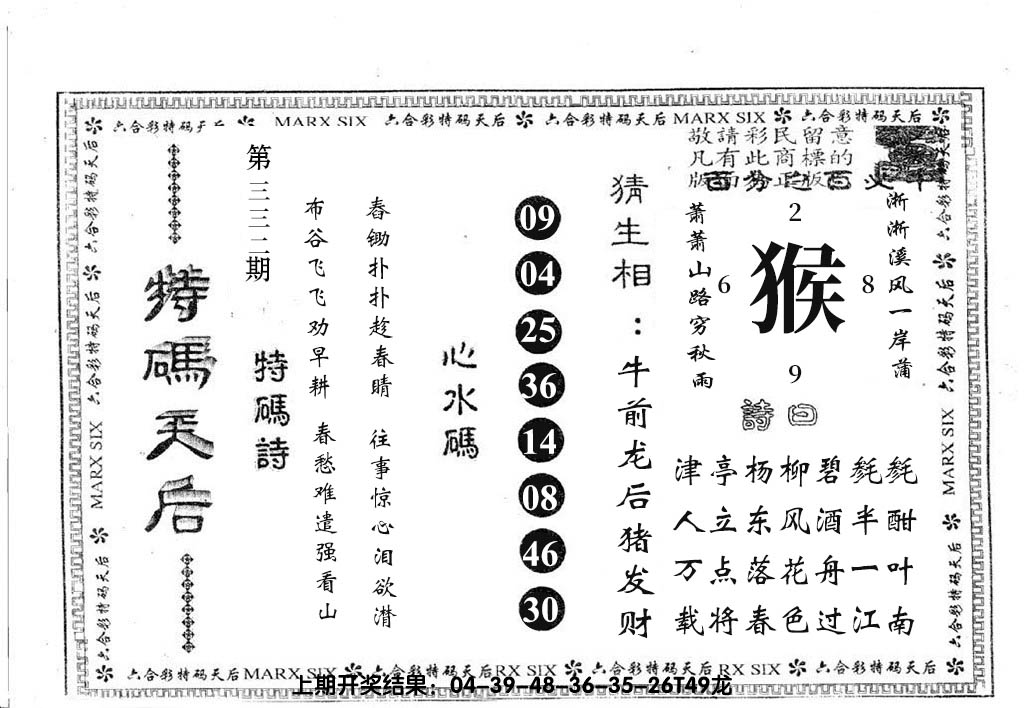 六合彩特码天后 MARX SIX 六合彩特码天后 六合彩特码天后 MARX SIX 六合彩特码天后
敬請彩民留意
凡有此商標的
特碼天后
第三三二期
特碼詩
布谷飞飞劝早耕 舂锄扑扑趁春晴
春愁难遣强看山 往事惊心泪欲潸
心水碼
09
04
25
36
14
08
46
30
猜生相：牛前龙后猪发财
萧萧山路穷秋雨
淅淅溪风一岸蒲
2
6 猴 8
9
詩曰
津亭杨柳碧毵毵
人立东风酒半酣
万点落花舟一叶
载将春色过江南
六合彩特码天后 MARX SIX 六合彩特码天后 RX SIX 六合彩特码天后 RX SIX 六合彩特码天后
上期开奖结果：04-39-48-36-35-26T49龙